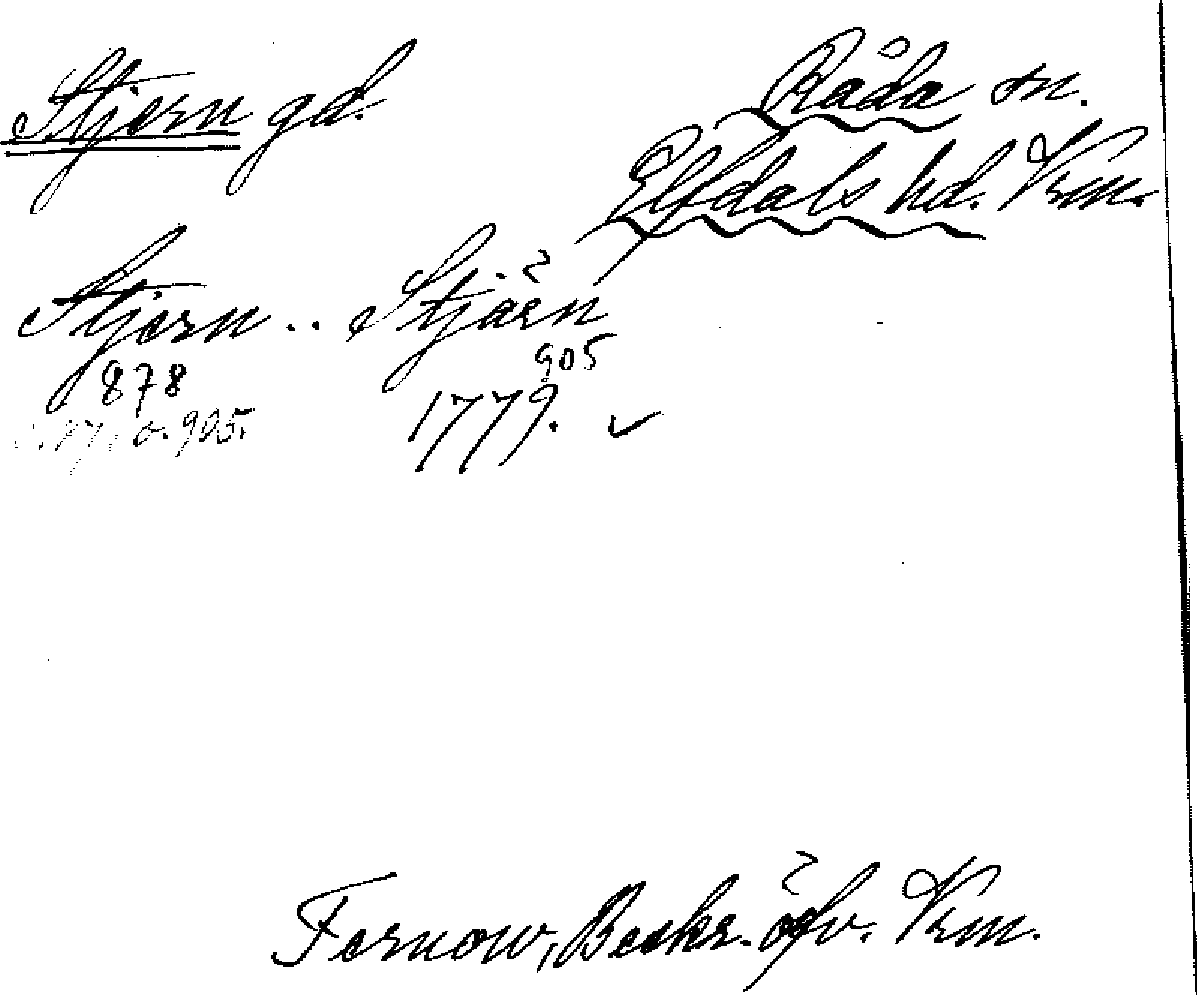 Stjern gd.
Råda sn.
Elfdals hd. Vrm.
Stjern .. Stjärn
878 905
o. 905. 1779.
Fernow, Beskr. öfv. Vrm.